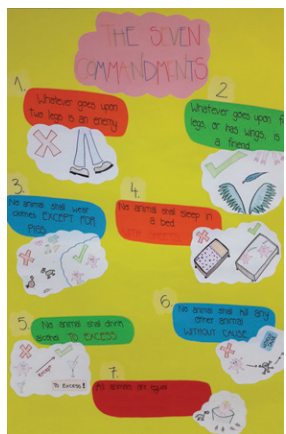 THE SEVEN
COMMANDMENTS
1.
Whatever goes upon
two legs is an enemy
2.
Whatever goes upon
legs, or has wings, is
a friend.
3.
No animal shall wear
clothes EXCEPT FOR
PIGS
4.
No animal shall sleep in
a bed
WITH SHEETS
5.
No animal shall drink
alcohol TO EXCESS
TO EXCESS!
6.
No animal shall kill any
other animal
WITHOUT CAUSE
7.
All animals are equal